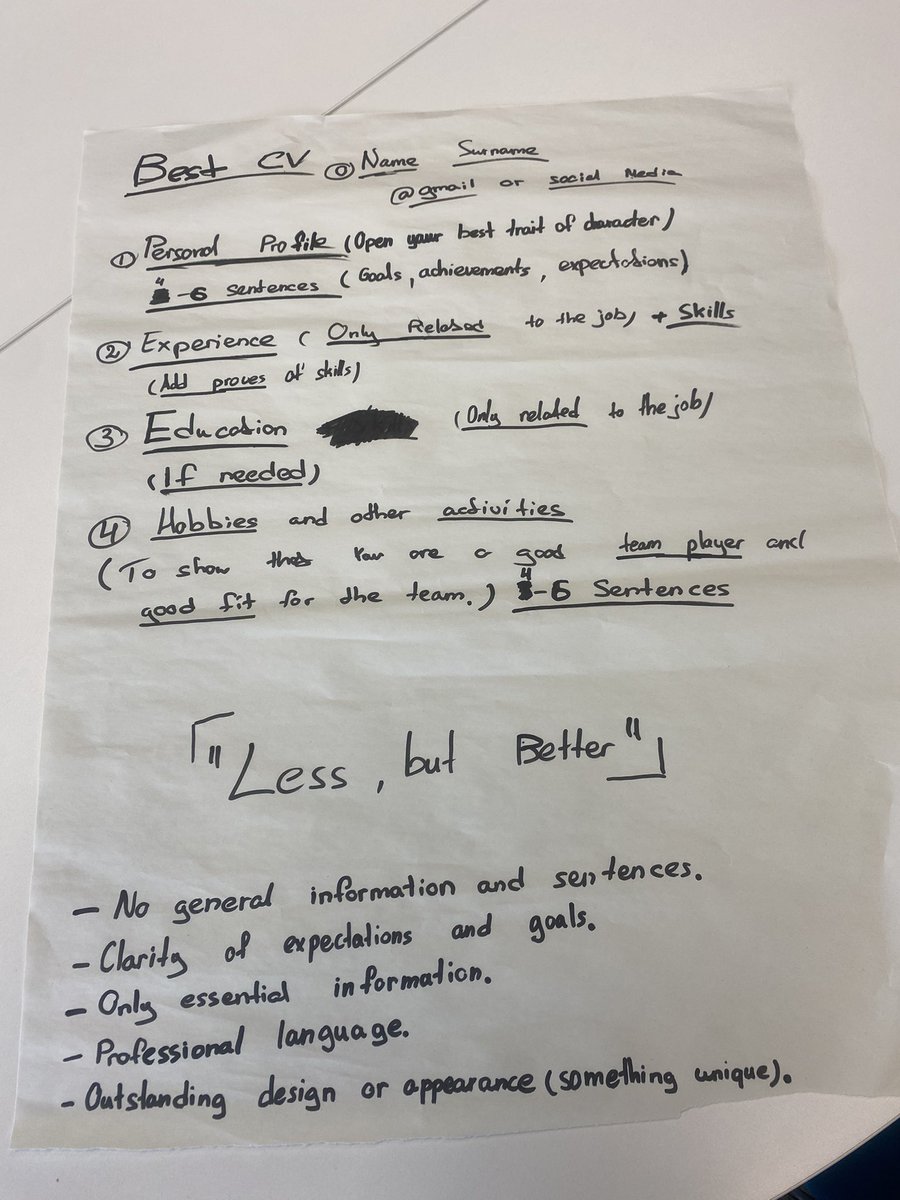 Best CV ⓪ Name Surname
@gmail or social Media
① Personal Profile (Open your best trait of character)
4-6 sentences (Goals, achievements, expectations)
② Experience (Only Related to the job) + Skills
(Add proves of skills)
③ Education (Only related to the job)
(If needed)
④ Hobbies and other activities
(To show that You are a good team player and
good fit for the team.) 4-6 Sentences
「"Less, but Better"」
- No general information and sentences.
- Clarity of expectations and goals.
- Only essential information.
- Professional language.
- Outstanding design or appearance (something unique).